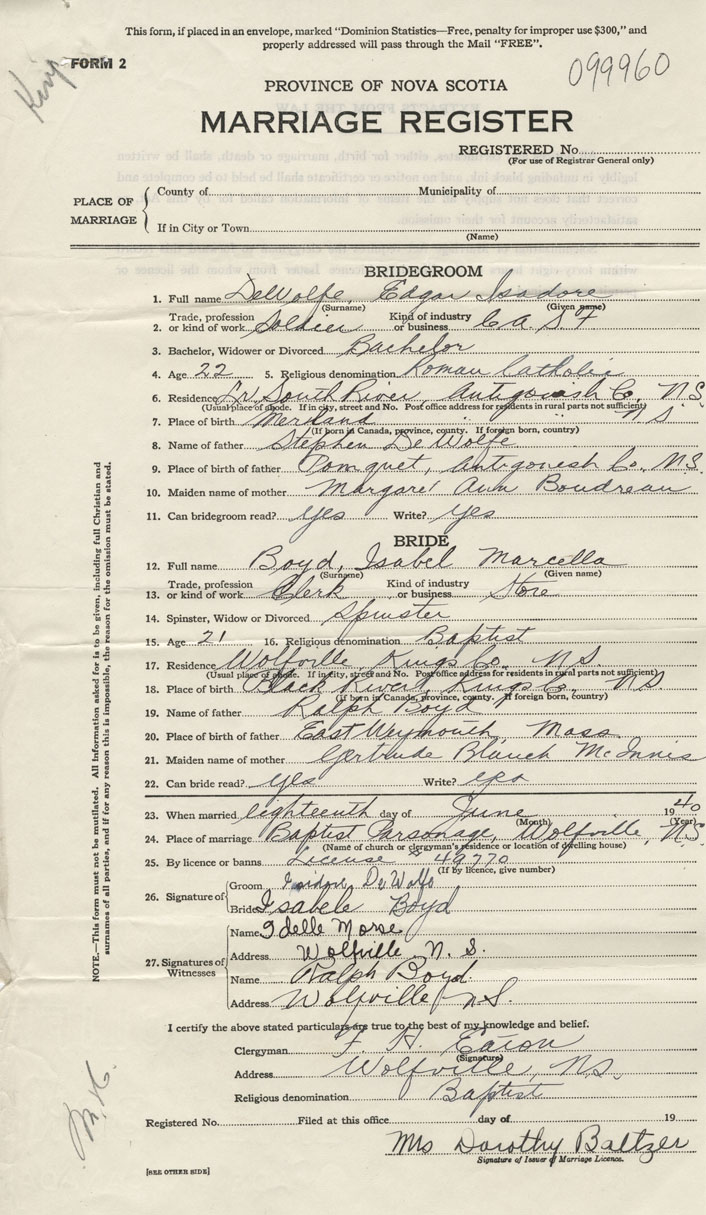 This form, if placed in an envelope, marked "Dominion Statistics—Free, penalty for improper use $300," and
properly addressed will pass through the Mail "FREE".
FORM 2
099960
PROVINCE OF NOVA SCOTIA
MARRIAGE REGISTER
REGISTERED No.
(For use of Registrar General only)
PLACE OF MARRIAGE
County of Municipality of
If in City or Town
(Name)
BRIDEGROOM
1. Full name DeWolfe, Edgar Isadore
(Surname) (Given name)
2. Trade, profession or kind of work Soldier Kind of industry or business C.A.S.F
3. Bachelor, Widower or Divorced Bachelor
4. Age 22 5. Religious denomination Roman Catholic
6. Residence South River, Antigonish Co., N.S.
(Usual place of abode. If in city, street and No. Post office address for residents in rural parts not sufficient)
7. Place of birth Merland " " N.S.
(If born in Canada, province, county. If foreign born, country)
8. Name of father Stephen DeWolfe
9. Place of birth of father Pomquet, Antigonish Co., N.S.
10. Maiden name of mother Margaret Ann Boudreau
11. Can bridegroom read? yes Write? yes
BRIDE
12. Full name Boyd, Isabel Marcella
(Surname) (Given name)
13. Trade, profession or kind of work Clerk Kind of industry or business Store
14. Spinster, Widow or Divorced Spinster
15. Age 21 16. Religious denomination Baptist
17. Residence Wolfville, Kings Co. N.S.
(Usual place of abode. If in city, street and No. Post office address for residents in rural parts not sufficient)
18. Place of birth Black River, Kings Co. N.S.
(If born in Canada, province, county. If foreign born, country)
19. Name of father Ralph Boyd
20. Place of birth of father East Weymouth, Mass
21. Maiden name of mother Gertrude Blanch McInnis
22. Can bride read? yes Write? yes
23. When married eighteenth day of June 1940
(Month) (Year)
24. Place of marriage Baptist Parsonage, Wolfville, N.S.
(Name of church or clergyman's residence or location of dwelling house)
25. By licence or banns License # 49770
(If by licence, give number)
26. Signature of
Groom Isidore DeWolfe
Bride Isabele Boyd
27. Signatures of Witnesses
Name Idelle Morse
Address Wolfville, N.S.
Name Ralph Boyd
Address Wolfville N.S.
I certify the above stated particulars are true to the best of my knowledge and belief.
Clergyman F. H. Eaton
(Signature)
Address Wolfville, N.S.
Religious denomination Baptist
Registered No. Filed at this office day of 19
Mrs Dorothy Baltzer
Signature of Issuer of Marriage Licence.
[SEE OTHER SIDE]
NOTE.—This form must not be mutilated. All Information asked for is to be given, including full Christian and
surnames of all parties, and if for any reason this is impossible, the reason for the omission must be stated.